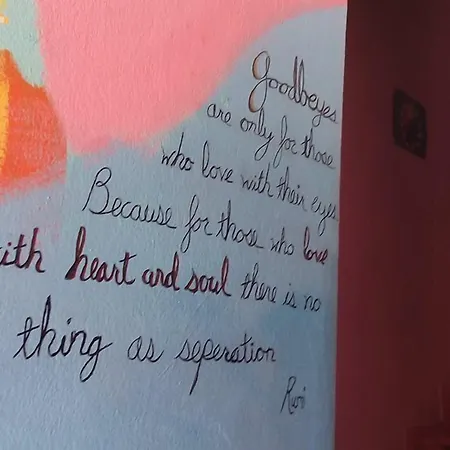 Goodbeyes
are only for those
who love with their eyes
Because for those who love
ith heart and soul there is no
thing as seperation
Rumi